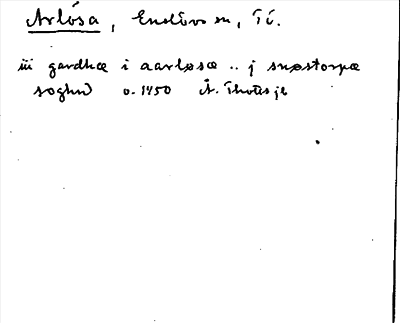 Arlösa, Enslövs sn, Tö.
iii gardhæ i aarløsæ .. j snøstorpæ
soghn o. 1450 Å. Thottsjb